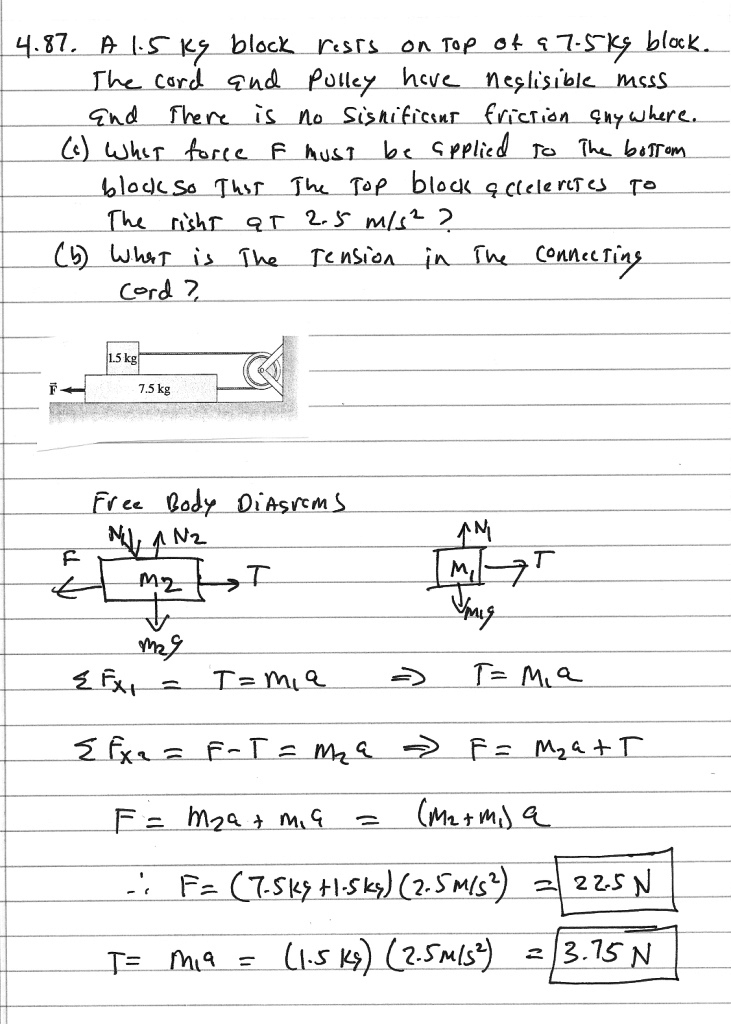 4.87. A 1.5 kg block rests on top of a 7.5 kg block.
The cord and pulley have negligible mass
and there is no significant friction anywhere.
(a) What force F must be applied to the bottom
block so that the top block accelerates to
the right at 2.5 m/s² ?
(b) What is the tension in the connecting
cord ?
1.5 kg
F⃗ 7.5 kg
Free Body Diagrams
N1 N2 N1
F M2 T M1 T
m2g m1g
ΣFx1 = T = m1a ⇒ T = M1a
ΣFx2 = F - T = m2a ⇒ F = m2a + T
F = m2a + m1a = (m2 + m1) a
∴ F = (7.5 kg + 1.5 kg) (2.5 m/s²) = 22.5 N
T = m1a = (1.5 kg) (2.5 m/s²) = 3.75 N